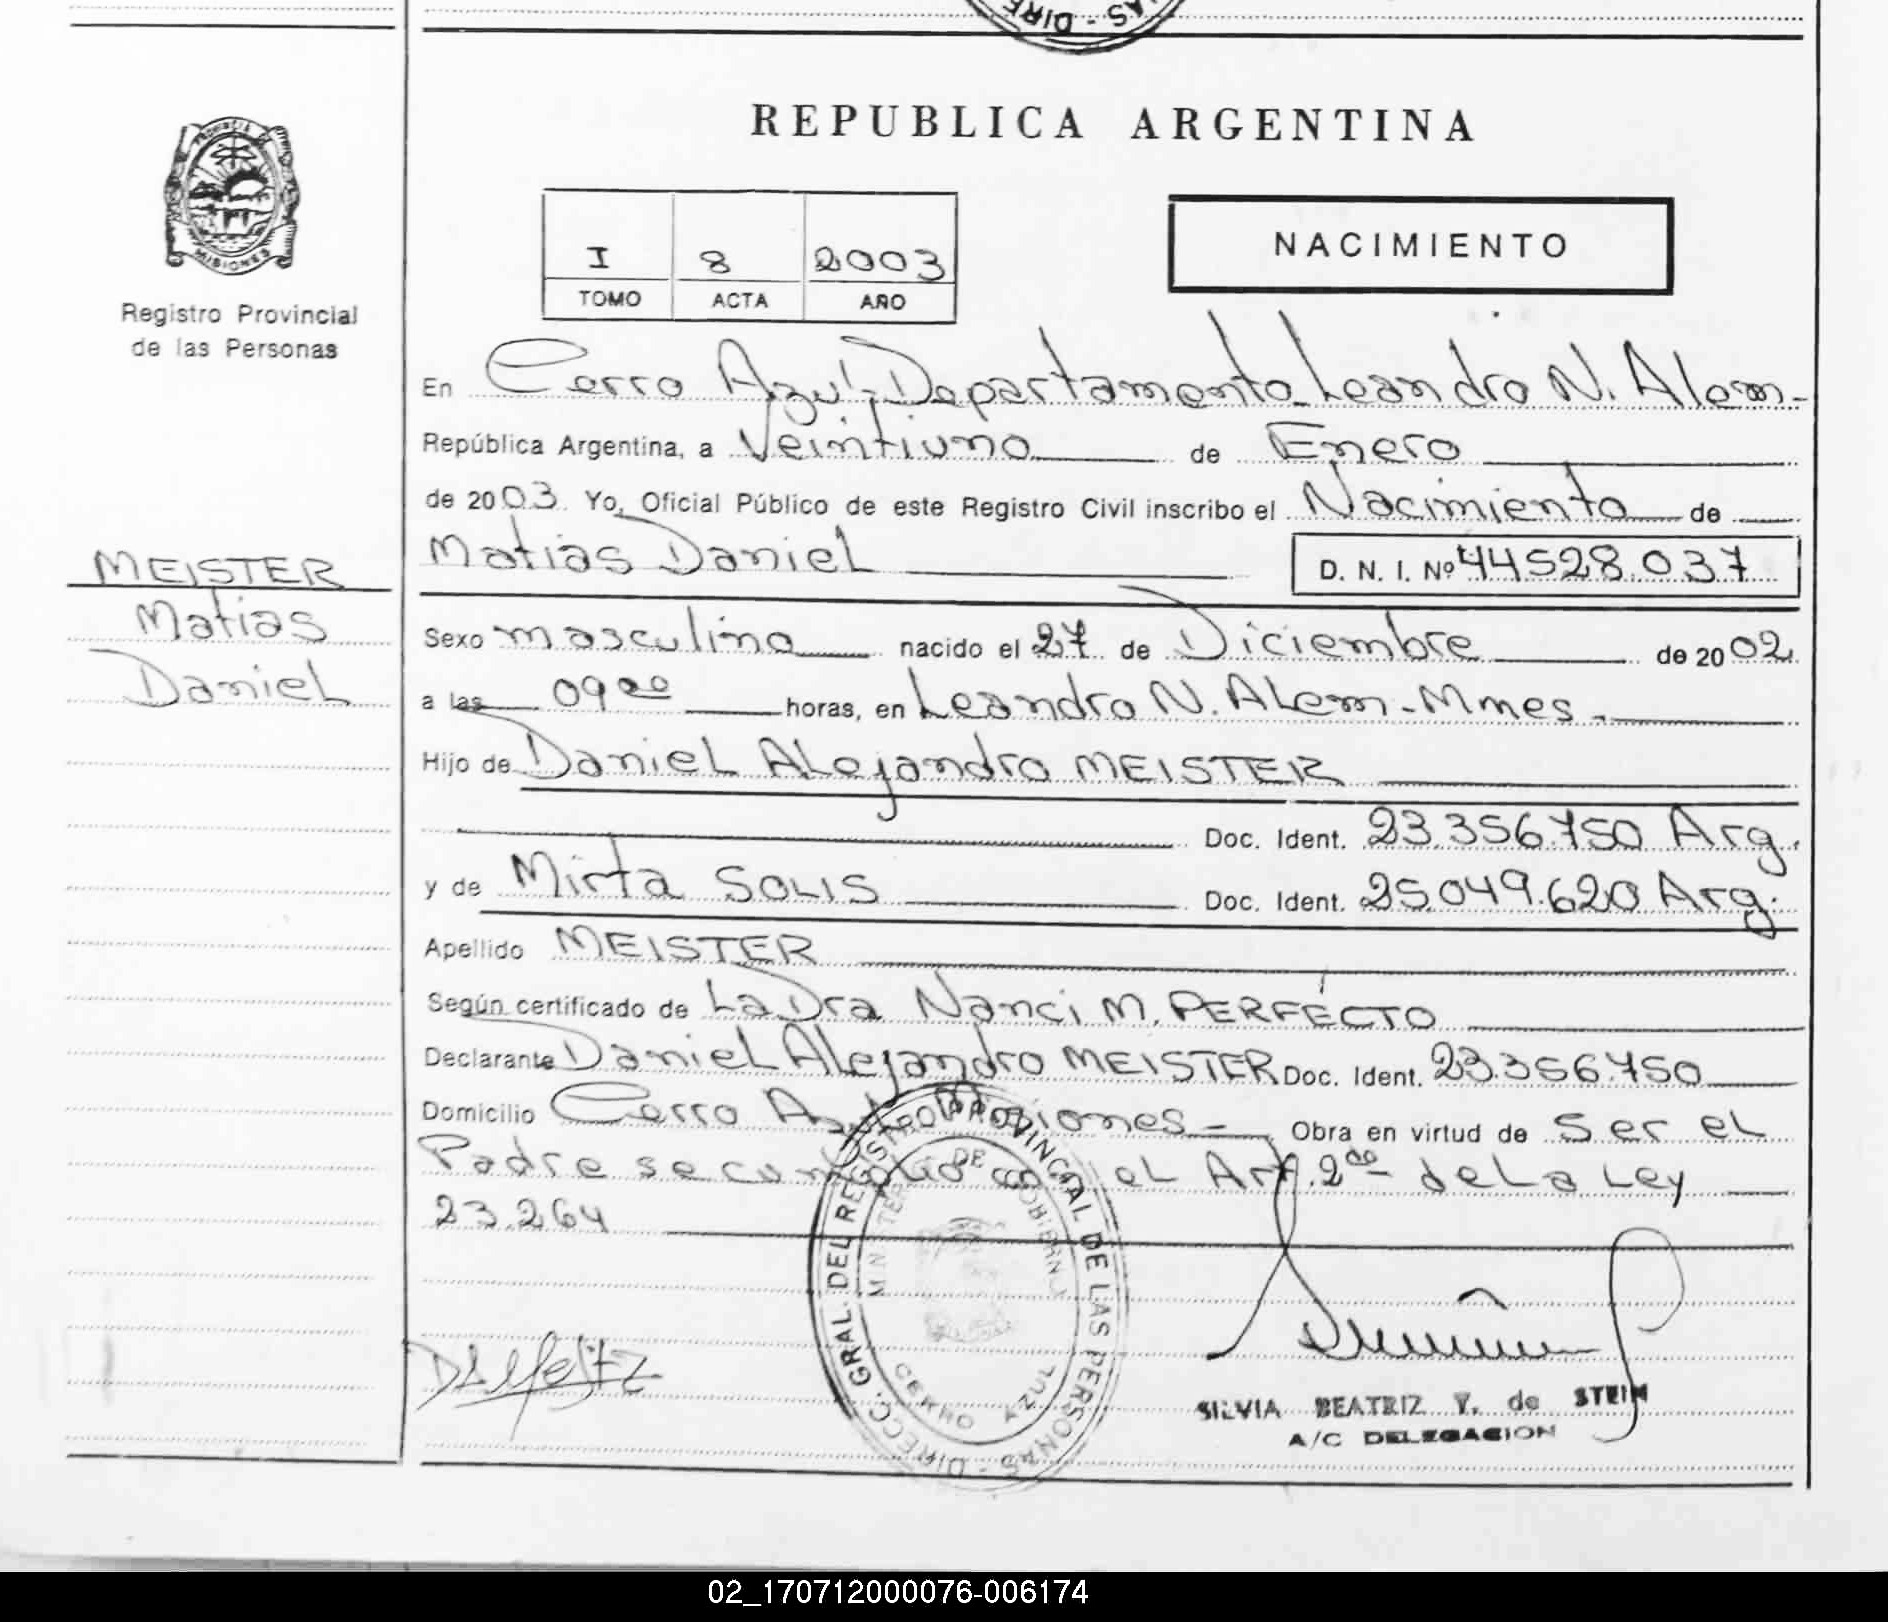 REPUBLICA ARGENTINA
PROVINCIA DE
MISIONES
Registro Provincial
de las Personas
I 8 2003
TOMO ACTA AÑO
NACIMIENTO
En Cerro Azul-Departamento Leandro N. Alem-
República Argentina, a Veintiuno de Enero
de 2003. Yo, Oficial Público de este Registro Civil inscribo el Nacimiento de
Matias Daniel D. N. I. Nº 44528.037
MEISTER
Matias
Daniel
Sexo masculino nacido el 27 de Diciembre de 2002
a las 09 00 horas, en Leandro N. Alem-Mnes-
Hijo de Daniel Alejandro MEISTER
Doc. Ident. 23.356.750 Arg.
y de Mirta SOLIS Doc. Ident. 25.049.620 Arg.
Apellido MEISTER
Según certificado de La Dra Nanci M. PERFECTO
Declarante Daniel Alejandro MEISTER Doc. Ident. 23.356.750
Domicilio Cerro Azul Misiones- Obra en virtud de ser el
Padre se cumplio con el Art. 2do de la Ley
23.264
DIRECC. GRAL. DEL REGISTRO PROVINCIAL DE LAS PERSONAS -
MINISTERIO DE GOBIERNO
CERRO AZUL
SILVIA BEATRIZ V. de STEIN
A/C DELEGACION
02_170712000076-006174